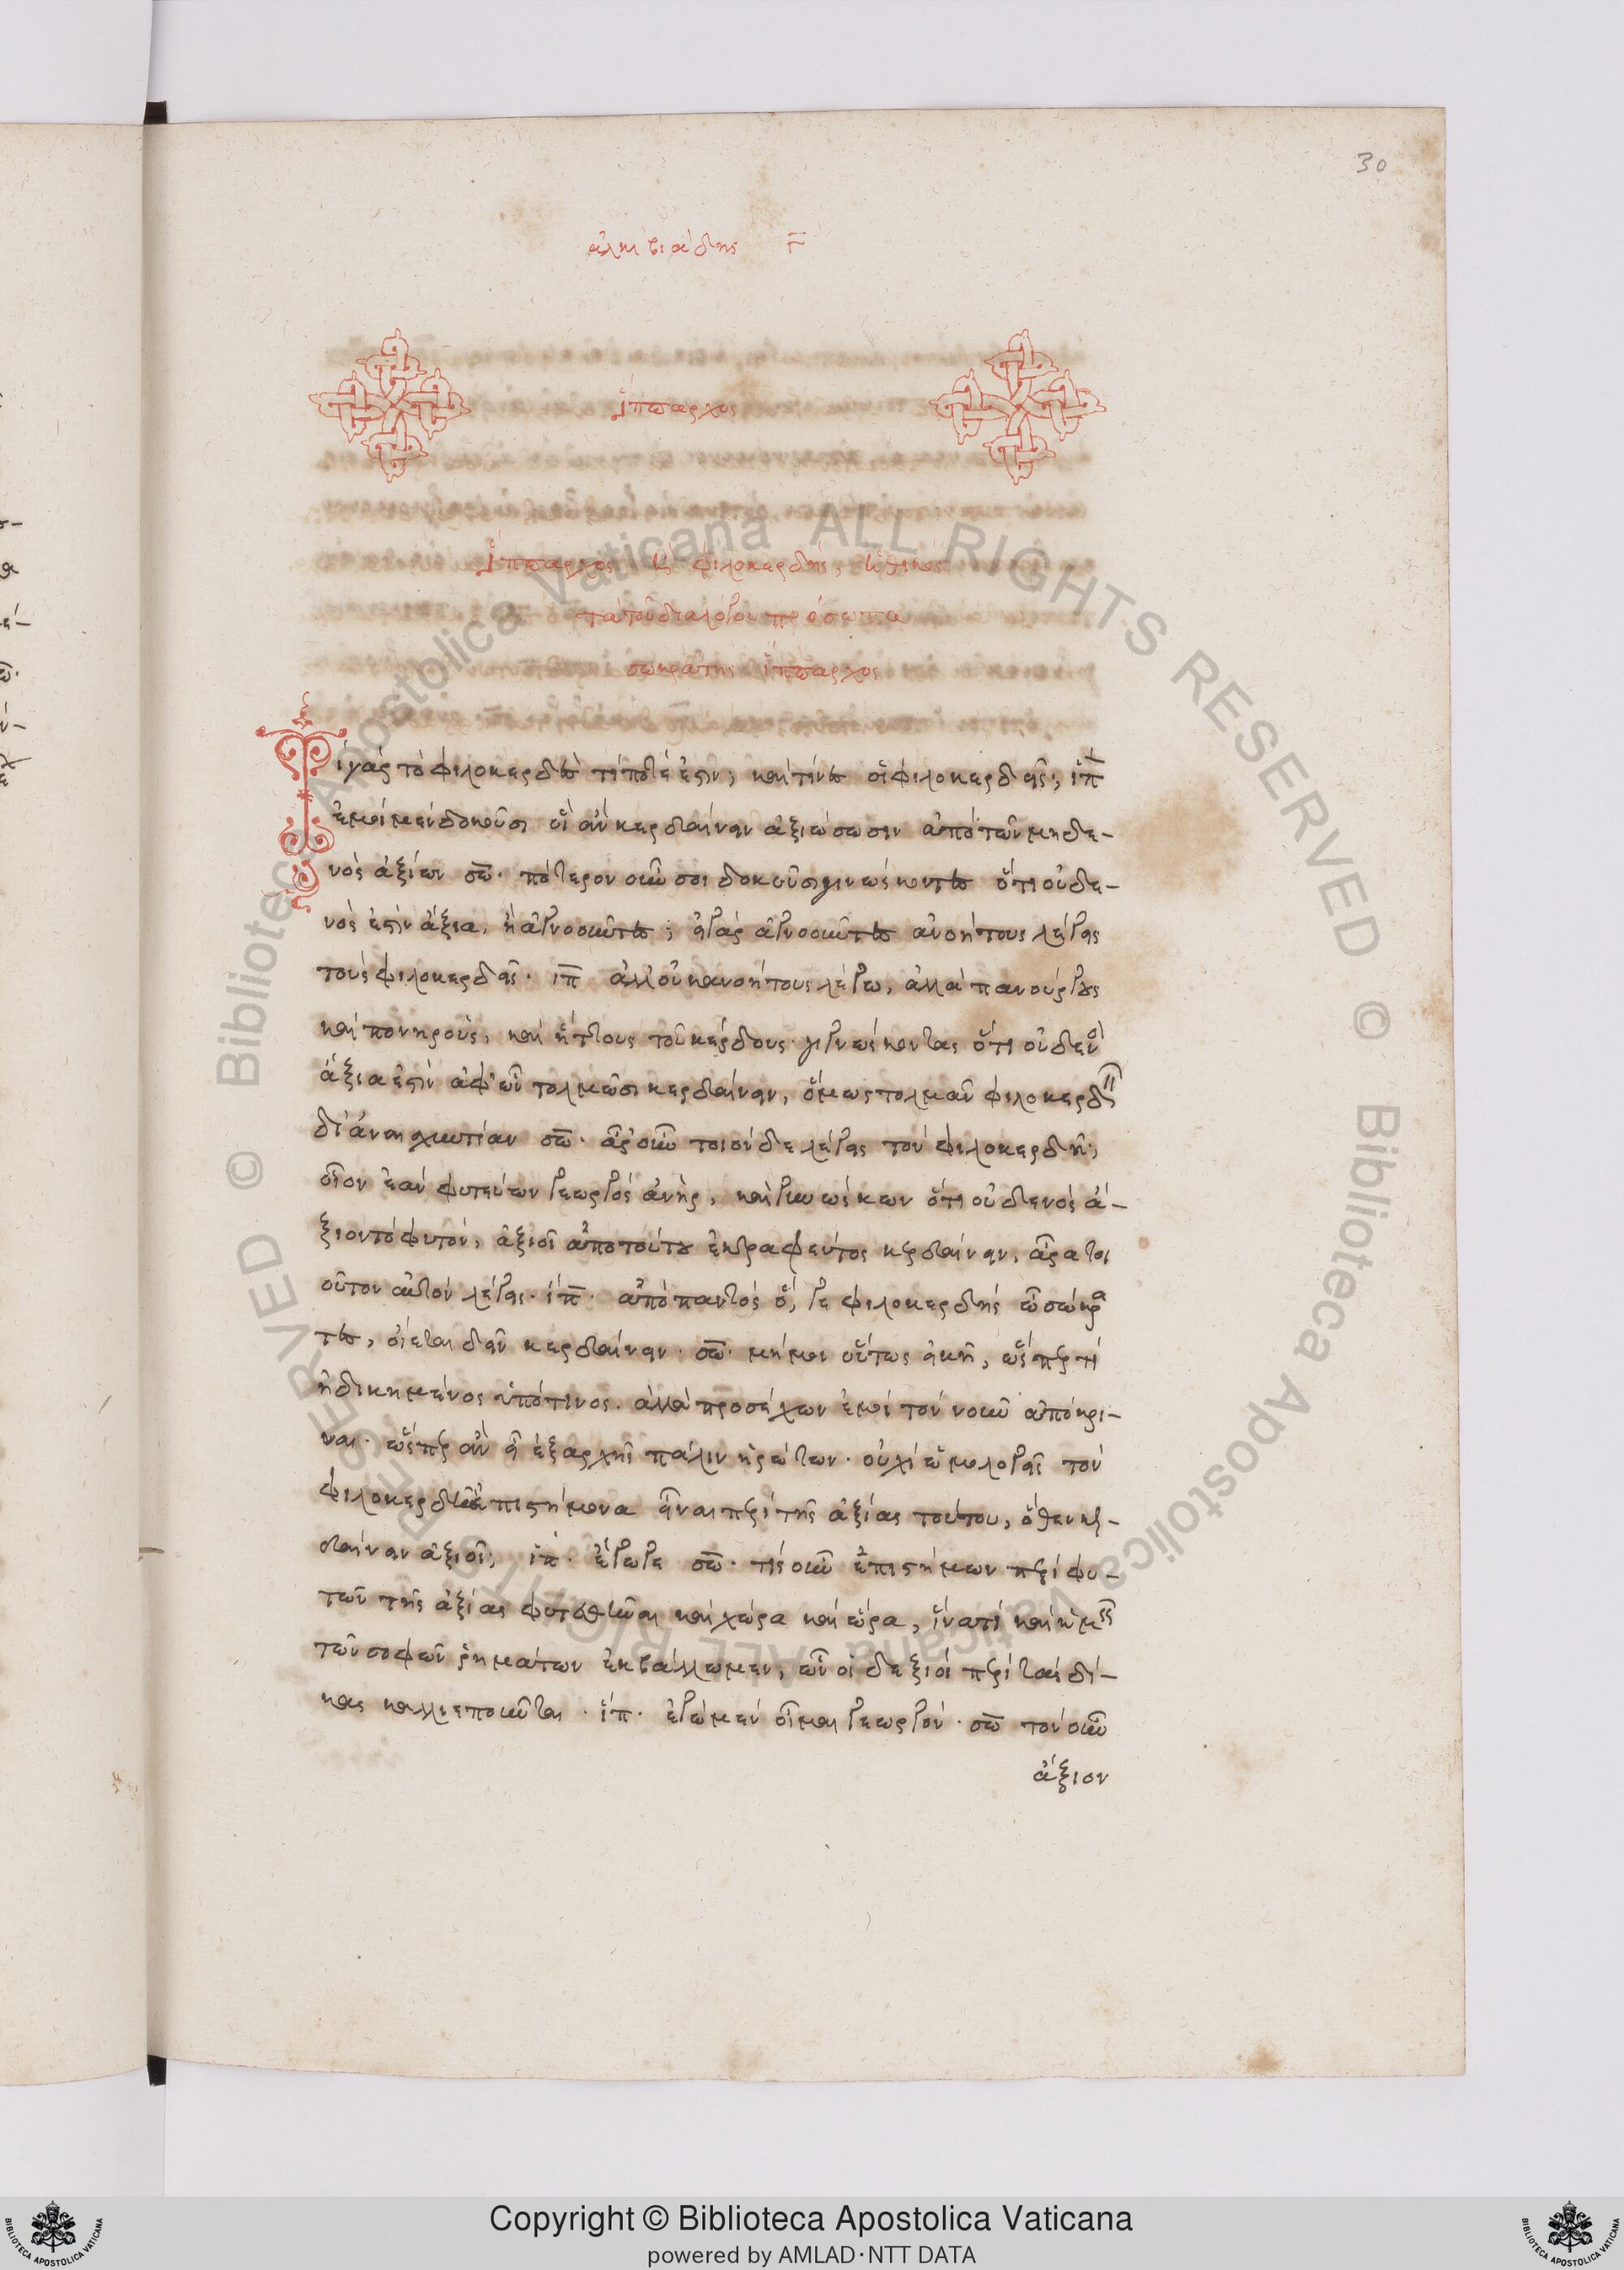 30
ἀλκιβιάδης
ἵππαρχος
ἵππαρχος ἢ φιλοκερδής, ἠθικός
τὰ τοῦ διαλόγου πρόσωπα
σωκράτης ἵππαρχος
Τί γὰρ τὸ φιλοκερδὲς τί ποτέ ἐστιν; καὶ τίνες οἱ φιλοκερδεῖς; ἱπ
ἐμοὶ μὲν δοκοῦσι οἳ ἂν κερδαίνειν ἀξιώσωσιν ἀπὸ τῶν μηδε-
νὸς ἀξίων σω· πότερον οὖν σοι δοκοῦσι γινώσκοντες ὅτι οὐδε-
νός ἐστιν ἄξια, ἢ ἀγνοοῦντες; εἰ γὰρ ἀγνοοῦντες ἀνοήτους λέγεις
τοὺς φιλοκερδεῖς· ιπ ἀλλ' οὐκ ἀνοήτους λέγω, ἀλλὰ πανούργους
καὶ πονηρούς, καὶ ἥττους τοῦ κέρδους· γιγνώσκοντας ὅτι οὐδενὸς
ἄξιά ἐστιν ἀφ' ὧν τολμῶσι κερδαίνειν, ὅμως τολμᾶν φιλοκερδεῖν
δι' ἀναισχυντίαν σω· ἆρ' οὖν τοιόνδε λέγεις τὸν φιλοκερδῆ;
οἷον ἐὰν φυτεύων γεωργὸς ἀνήρ, καὶ γινώσκων ὅτι οὐδενὸς ἄ-
ξιον τὸ φυτόν, ἀξιοῖ ἀπὸ τούτου ἐκτραφέντος κερδαίνειν, ἆρα τοι
οῦτον αὐτὸν λέγεις· ἱπ· ἀπὸ παντὸς ὅ, γε φιλοκερδής ὦ σώκρα
τες, οἴεται δεῖν κερδαίνειν· σω· μή μοι οὕτως εἰκῇ, ὥσπερ τὶ
ἠδικημένος ὑπό τινος· ἀλλὰ προσέχων ἐμοὶ τὸν νοῦν ἀπόκρι-
ναι· ὥσπερ ἂν εἰ ἐξαρχῆς πάλιν ἠρώτων· οὐχὶ ὁμολογεῖς τὸν
φιλοκερδῆ ἐπιστήμονα εἶναι περὶ τῆς ἀξίας τούτου, ὅθεν κερ-
δαίνειν ἀξιοῖ; ἱπ· ἔγωγε σω· τίς οὖν ἐπιστήμων περὶ φυ-
τῶν τῆς ἀξίας φυτευθῆναι καὶ χώρα καὶ ὥρα, ἵνα τὶ καὶ ἡμεῖς
τῶν σοφῶν ῥημάτων ἐκβάλλωμεν, ὧν οἱ δεξιοὶ περὶ τὰς δί-
κας καλλιεποῦνται· ἵπ· ἐγὼ μὲν οἶμαι γεωργόν· σω τὸ οὖν
ἄξιον
Copyright © Biblioteca Apostolica Vaticana
powered by AMLAD·NTT DATA
BIBLIOTECA APOSTOLICA VATICANA
BIBLIOTECA APOSTOLICA VATICANA
© Biblioteca Apostolica Vaticana ALL RIGHTS RESERVED © Biblioteca Apostolica Vaticana ALL RIGHTS RESERVED